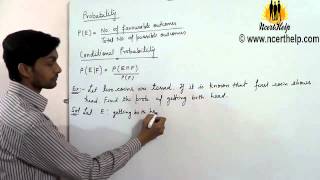 Probability
P(E) = No. of favourable outcomes
Total No. of possible outcomes
Conditional Probability
P(E|F) = P(E∩F)
P(F)
Ex:- Let two coins are tossed. If it is known that first coin shows
head. Find the prob. of getting both head.
Sol Let E: getting both he
NCERT Help
www.ncerthelp.com